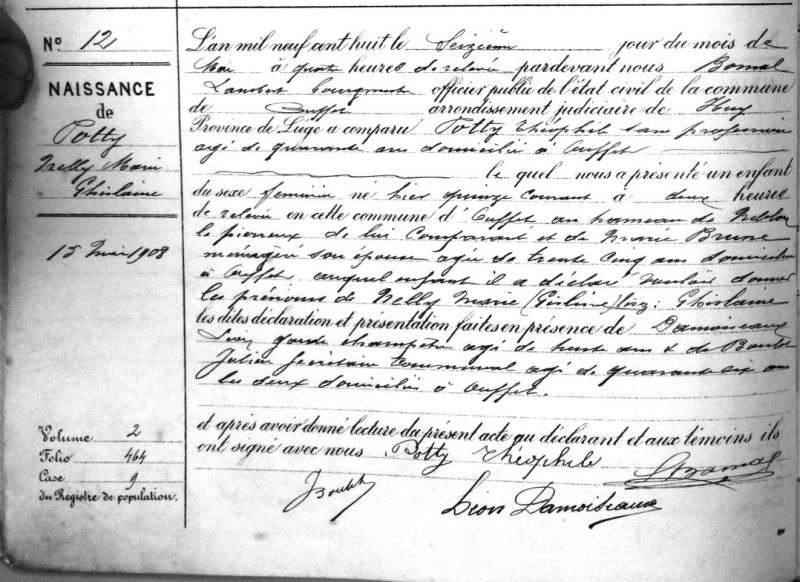 N° 12
NAISSANCE
de
Potty
Nelly Marie
Ghislaine
15 Mai 1908
Volume 2
Folio 464
Case 9
du Registre de population.
L'an mil neuf cent huit le Seizième jour du mois de
Mai à quatre heures de relevée pardevant nous Bomal
Lambert bourgmestre officier public de l'état civil de la commune
de Ouffet arrondissement judiciaire de Huy
Province de Liége a comparu Potty Théophile sans profession
agé de quarante ans domicilié à Ouffet
le quel nous a présenté un enfant
du sexe féminin né hier quinze courant à deux heures
de relevée en cette commune d'Ouffet au hameau de
le pierreux de lui Comparant et de Marie Brune
ménagère son épouse agée de trente cinq ans domiciliée
à Ouffet auquel enfant il a déclaré vouloir donner
les prénoms de Nelly Marie (Gislaine) lisez: Ghislaine
les dites déclaration et présentation faites en présence de Damoiseaux
Léon garde champêtre agé de trente ans & de Boulet
Julien Secrétaire Communal agé de quarante six ans
les deux domiciliés à Ouffet.
et après avoir donné lecture du présent acte au déclarant et aux témoins ils
ont signé avec nous Potty Théophile
LBomal
JBoulet
Léon Damoiseaux